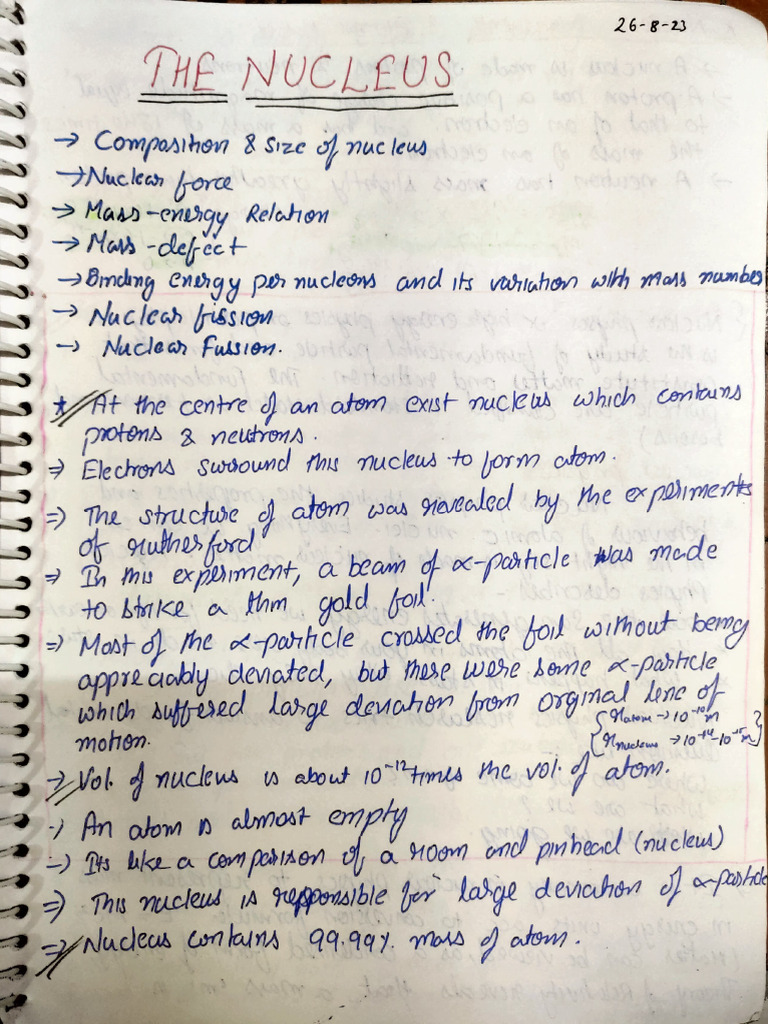 26-8-23
THE NUCLEUS
→ Composition & Size of nucleus
→ Nuclear force
→ Mass-energy Relation
→ Mass-defect
→ Binding energy per nucleons and its variation with mass number
→ Nuclear fission
→ Nuclear Fussion.
* At the centre of an atom exist nucleus which contains
protons & neutrons.
⇒ Electrons surround this nucleus to form atom.
⇒ The structure of atom was revealed by the experiments
of rutherford
⇒ In this experiment, a beam of α-particle was made
to strike a thin gold foil.
⇒ Most of the α-particle crossed the foil without being
appreciably deviated, but there were some α-particle
which suffered large deviation from orginal line of
motion.
{ r atom → 10⁻¹⁰m
r nucleus → 10⁻¹⁴-10⁻¹⁵m }
→ Vol. of nucleus is about 10⁻¹² times the vol. of atom.
→ An atom is almost empty
→ Its like a comparison of a room and pinhead (nucleus)
⇒ This nucleus is responsible for large deviation of α-particle
⇒ Nucleus contains 99.99% mass of atom.